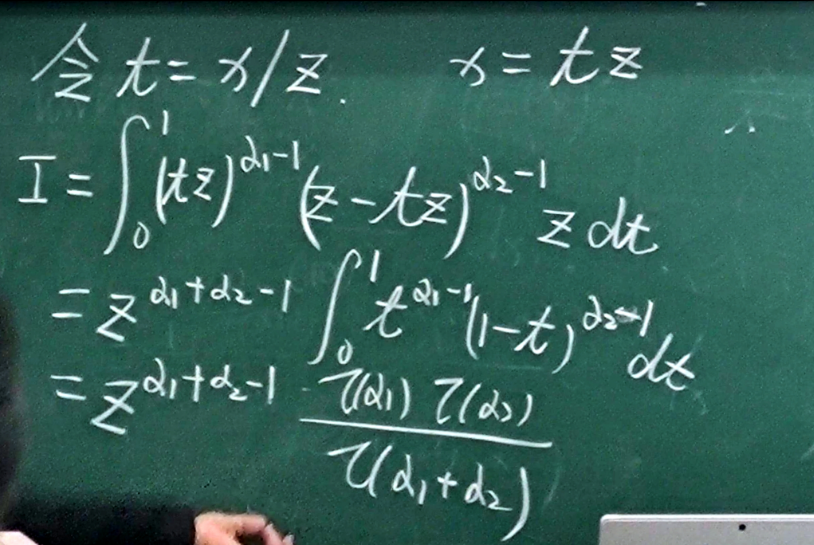 令 t = x/z. x = tz
I = ∫₀¹ (tz)^{α₁-1} (z-tz)^{α₂-1} z dt
= z^{α₁+α₂-1} ∫₀¹ t^{α₁-1} (1-t)^{α₂-1} dt
= z^{α₁+α₂-1} · \frac{Γ(α₁) Γ(α₂)}{Γ(α₁+α₂)}